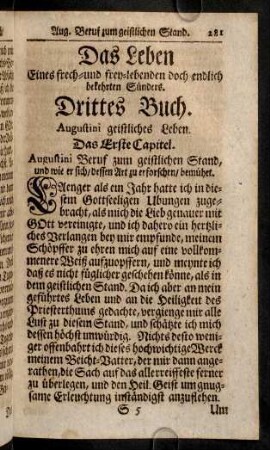 Aug. Beruf zum geistlichen Stand. 281
Das Leben
Eines frech- und frey-lebenden doch endlich
bekehrten Sünders.
Drittes Buch.
Augustini geistliches Leben.
Das Erste Capitel.
Augustini Beruf zum geistlichen Stand,
und wie er sich / dessen Art zu erforschen / bemühet.
LAenger als ein Jahr hatte ich in die-
sem Gottseeligen Ubungen zuge-
bracht, als mich die Lieb genauer mit
GOtt vereinigte, und ich dahero ein hertzli-
ches Verlangen bey mir empfunde, meinem
Schöpffer zu ehren mich auf eine vollkom-
menere Weiß aufzuopffern, und meynte ich
daß es nicht füglicher geschehen könne, als in
dem geistlichen Stand. Da ich aber an mein
geführtes Leben und an die Heiligkeit des
Priesterthums gedachte, vergienge mir alle
Lust zu diesem Stand, und schätzte ich mich
dessen höchst unwürdig. Nichts desto weni-
ger offenbahrt ich dieses hochwichtige Werck
meinem Beicht-Vatter, der mir dann ange-
rathen, die Sach auf das allerreiffeste ferner
zu überlegen, und den Heil. Geist um gnug-
same Erleuchtung inständigst anzuflehen.
S 5 Um